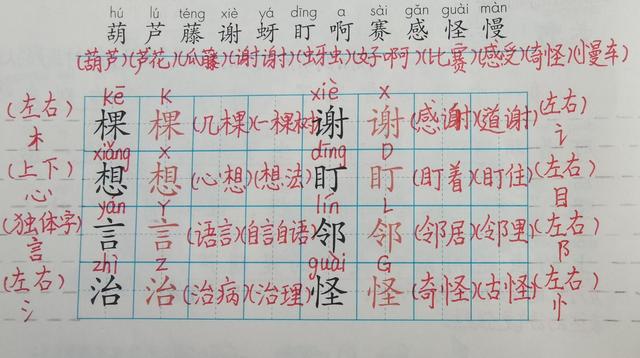 hú lú téng xiè yá dīng a sài gǎn guài màn
葫 芦 藤 谢 蚜 盯 啊 赛 感 怪 慢
(葫芦)(芦花)(瓜藤)(谢谢)(蚜虫)(好啊)(比赛)(感受)(奇怪)(慢车)
kē K xiè X
(左右) 棵 棵 (几棵)(一棵树) 谢 谢 (感谢)(道谢) (左右)
木 讠
xiǎng X dīng D
(上下) 想 想 (心想)(想法) 盯 盯 (盯着)(盯住) (左右)
心 目
yán Y lín L
(独体字) 言 言 (语言)(自言自语) 邻 邻 (邻居)(邻里) (左右)
言 阝
zhì Z guài G
(左右) 治 治 (治病)(治理) 怪 怪 (奇怪)(古怪) (左右)
氵 忄